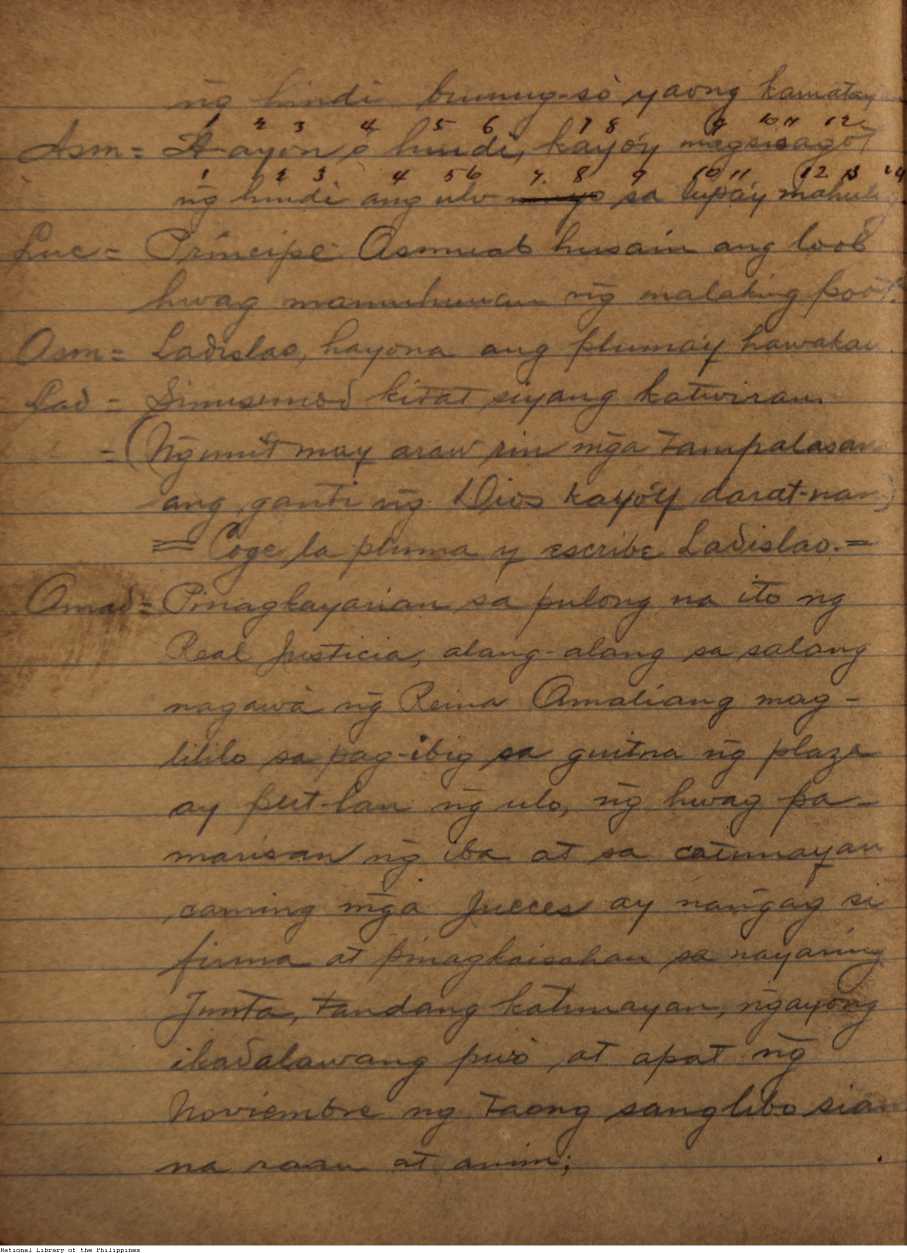 ñg hindi bumug-sò yaong kamatay
1 2 3 4 5 6 7 8 9 10 11 12
Asm = A-ayon ó hindi, kayo'y magsisagot
1 2 3 4 5 6 7 8 9 10 11 12 13 14
ñg hindi ang ulo sa lupa'y mahulog
Luc = Principe Asmuab husain ang loob
hwag manuhuwan ñg malaking poot.
Asm = Ladislao, hayona ang pluma'y hawakan.
Lad = Sinusunod kita't siyang katwiran.
= (Ñgunit may araw rin mg̃a tampalasan
ang ganti ñg Dios kayo'y darat-nan)
= Coge la pluma y escribe Ladislao. =
Amad = Pinagkayarian sa pulong na ito ng
Real Justicia, alang-alang sa salang
nagawà ñg Reina Amaliang mag-
lililo sa pag-ibig sa guitna ñg plaza
ay put-lan ñg ulo, ñg hwag pa-
marisan ñg iba at sa catunayan
caming mg̃a Jueces ay nang̃ag si
firma at pinagkaisahan sa nayaring
Junta, tandang katunayan, ng̃ayong
ikadalawang puo at apat ñg
Noviembre ng taong sanglibo siam
na raan at anim;
National Library of the Philippines